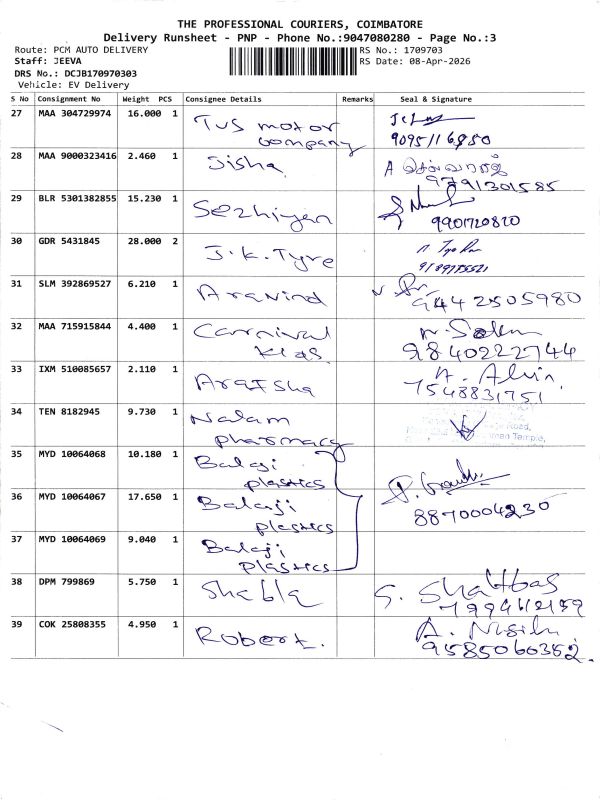 THE PROFESSIONAL COURIERS, COIMBATORE
Delivery Runsheet - PNP - Phone No.:9047080280 - Page No.:3
Route: PCM AUTO DELIVERY
RS No.: 1709703
Staff: JEEVA
RS Date: 08-Apr-2026
DRS No.: DCJB170970303
Vehicle: EV Delivery
S No Consignment No Weight PCS Consignee Details Remarks Seal & Signature
27 MAA 304729974 16.000 1 TVS motor company
9095116850
28 MAA 9000323416 2.460 1 Jisha
A செல்வராஜ்
9791301585
29 BLR 5301382855 15.230 1 Sezhiyan
9901720820
30 GDR 5431845 28.000 2 J.K. Tyre
31 SLM 392869527 6.210 1 Aravind
9442505980
32 MAA 715915844 4.400 1 Carnival kids
9840222744
33 IXM 510085657 2.110 1
A. Alvin
7548831751
34 TEN 8182945 9.730 1 Nalam pharmacy
Road,
Temple,
35 MYD 10064068 10.180 1 Balaji plastics
36 MYD 10064067 17.650 1 Balaji plastics
8870004230
37 MYD 10064069 9.040 1 Balaji plastics
38 DPM 799869 5.750 1
39 COK 25808355 4.950 1 Robert.
9585060352.